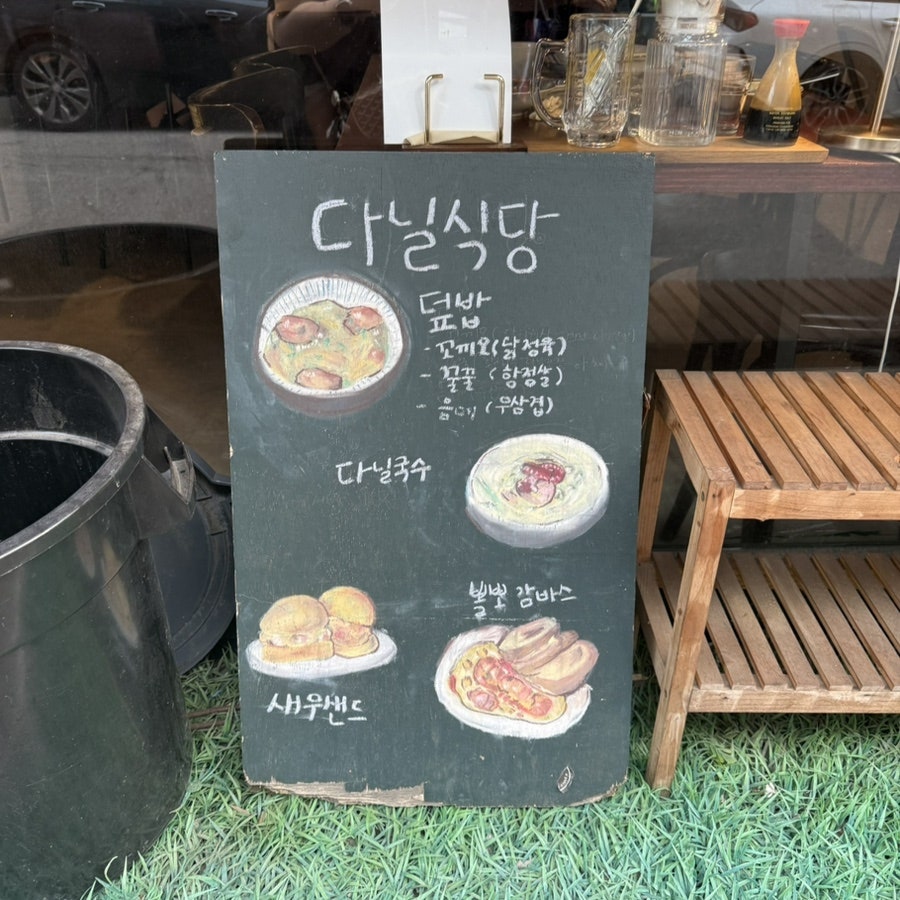 다닐식당
덮밥
- 꼬끼오(닭정육)
- 꿀꿀 (항정살)
- 음메 (우삼겹)
다닐국수
뽈뽀 감바스
새우샌드